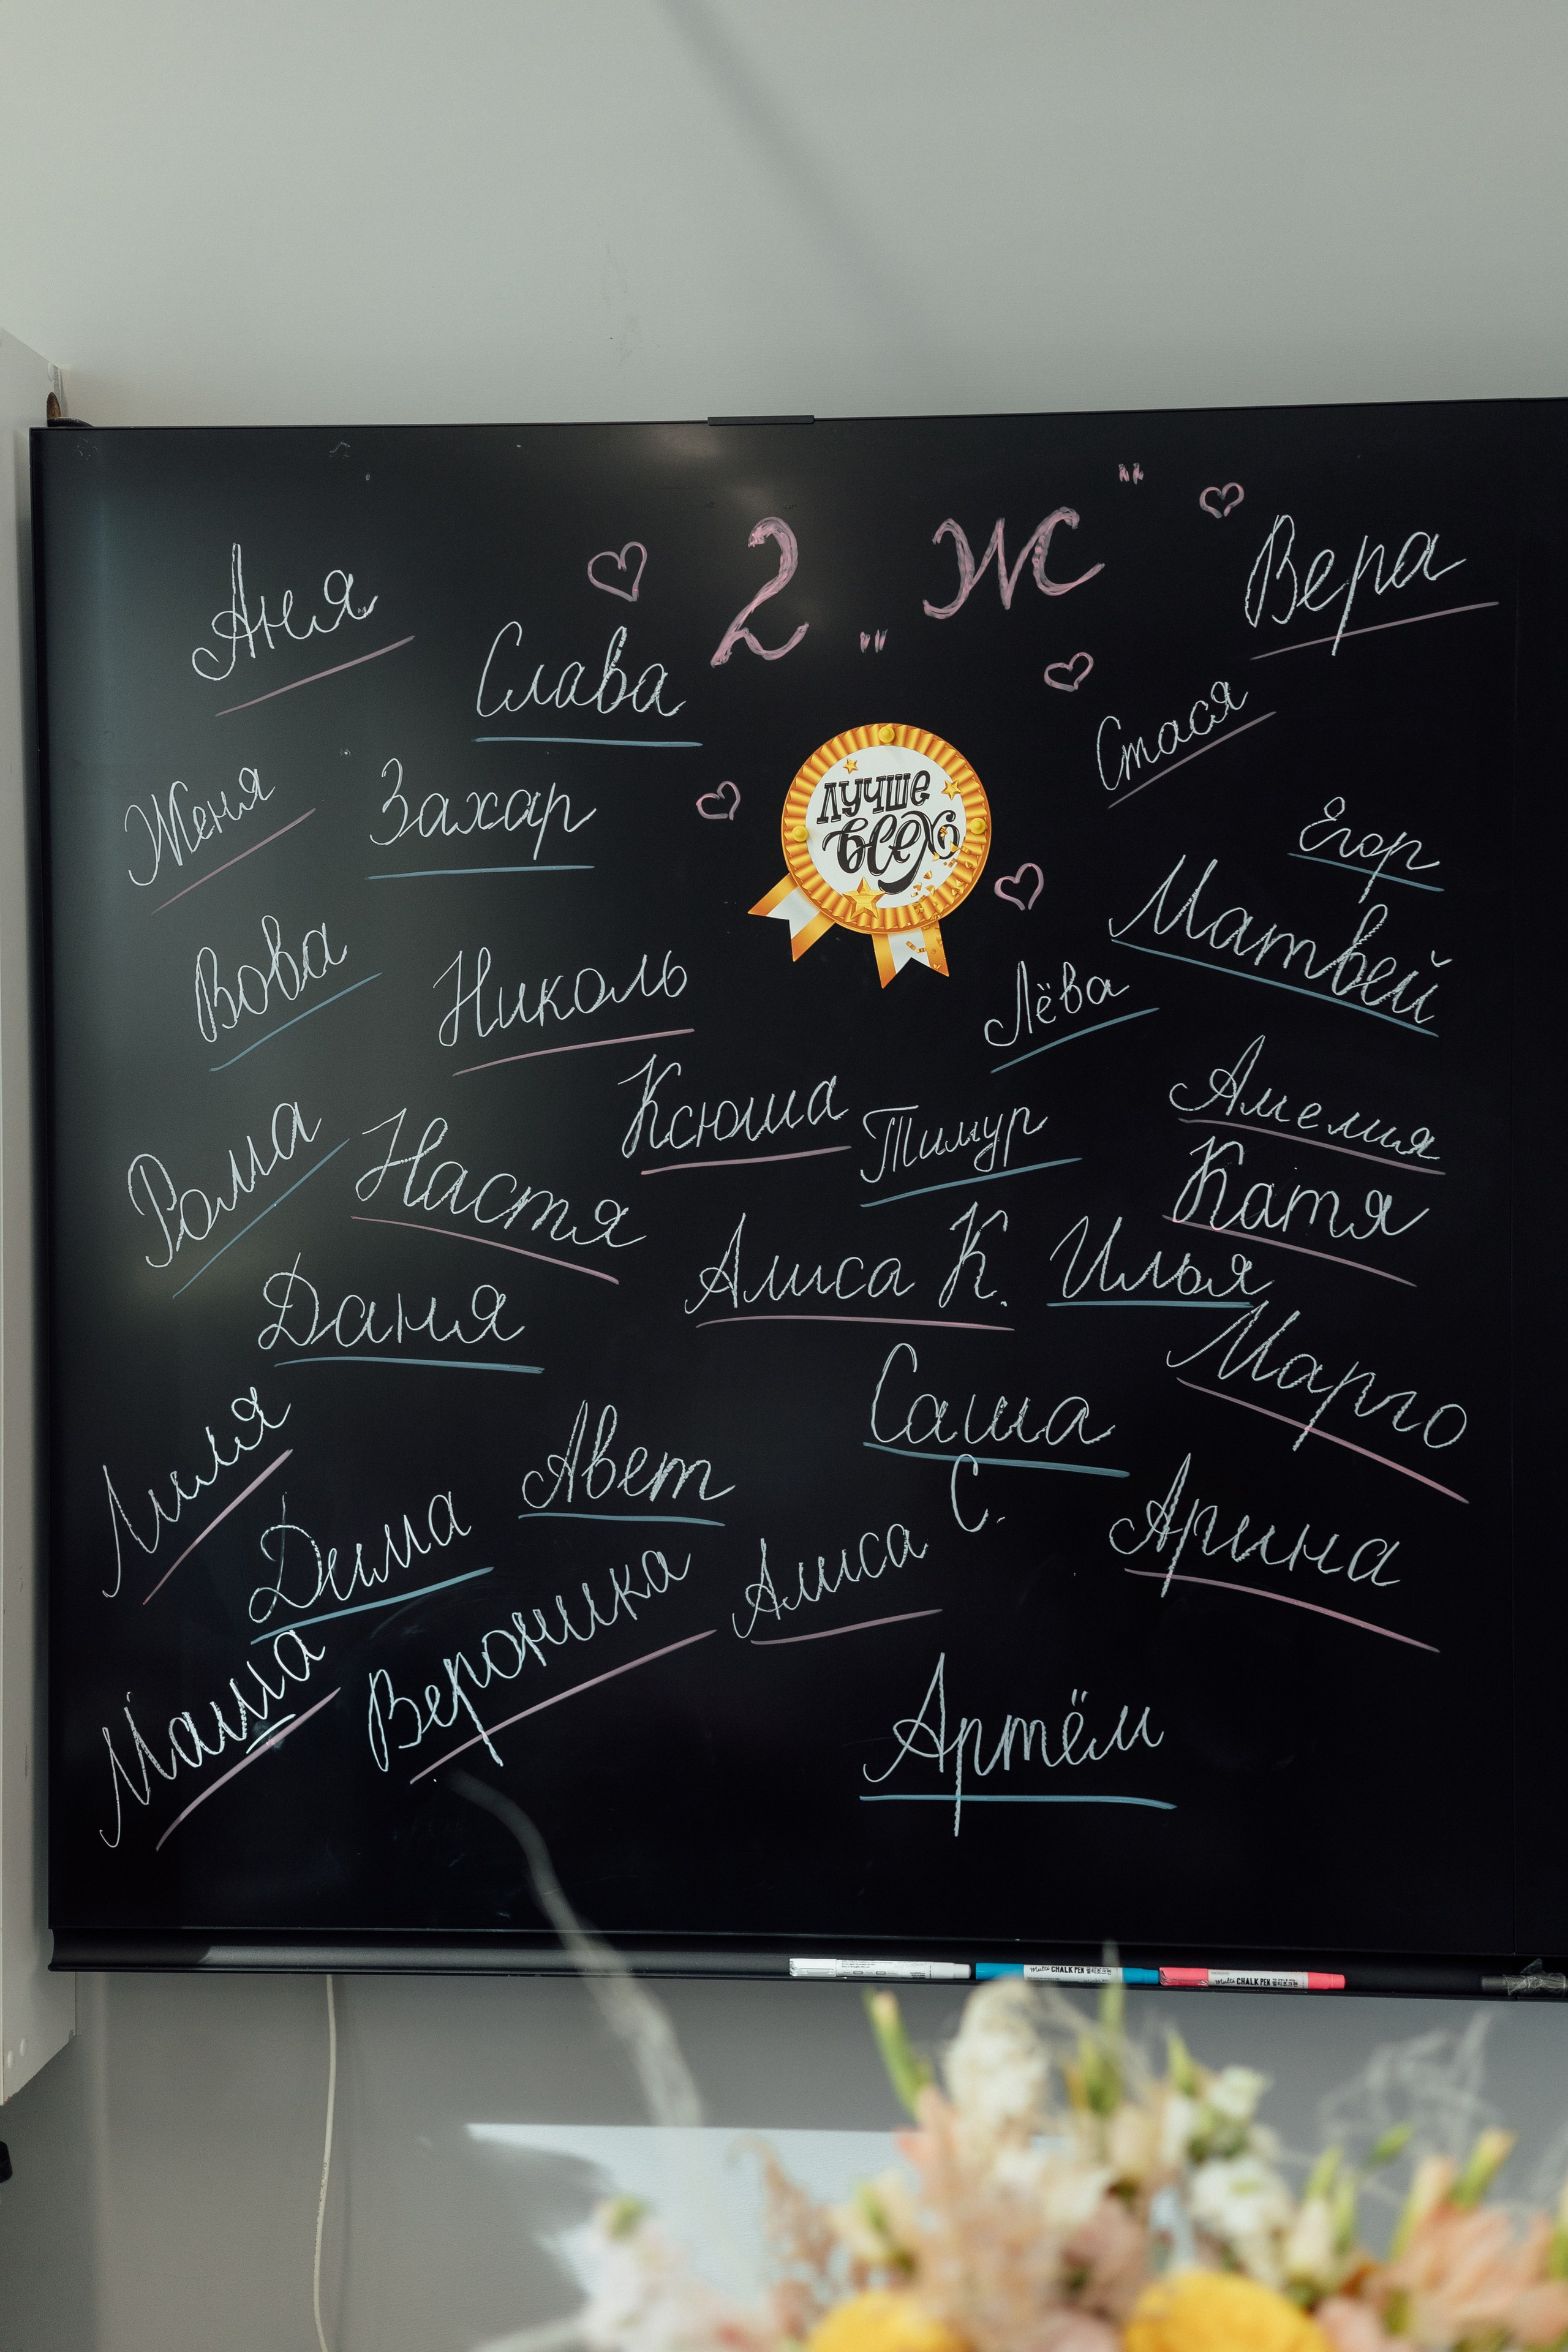 2 „Ж"
Аня
Слава
Вера
Стася
Женя
Захар
лучше
всех
Егор
Матвей
Вова
Николь
Лёва
Ксюша
Тимур
Амелия
Рома
Настя
Катя
Алиса К.
Илья
Даня
Марго
Саша
Лиля
Авет
Дима
Алиса С.
Арина
Вероника
Маша
Артём
multi CHALK PEN
multi CHALK PEN